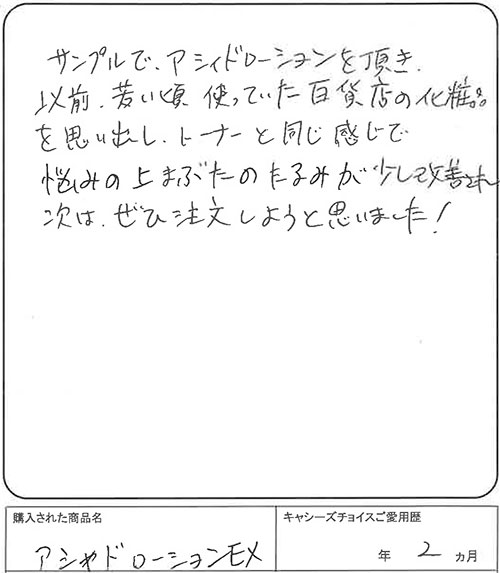 サンプルで、アシィドローションを頂き、
以前、若い頃 使っていた百貨店の化粧品
を思い出し、トーナーと同じ感じで
悩みの上まぶたのたるみが少し改善され
次は、ぜひ注文しようと思いました!
購入された商品名
キャシーズチョイスご愛用歴
アシャドローションEX
年 2 ヵ月